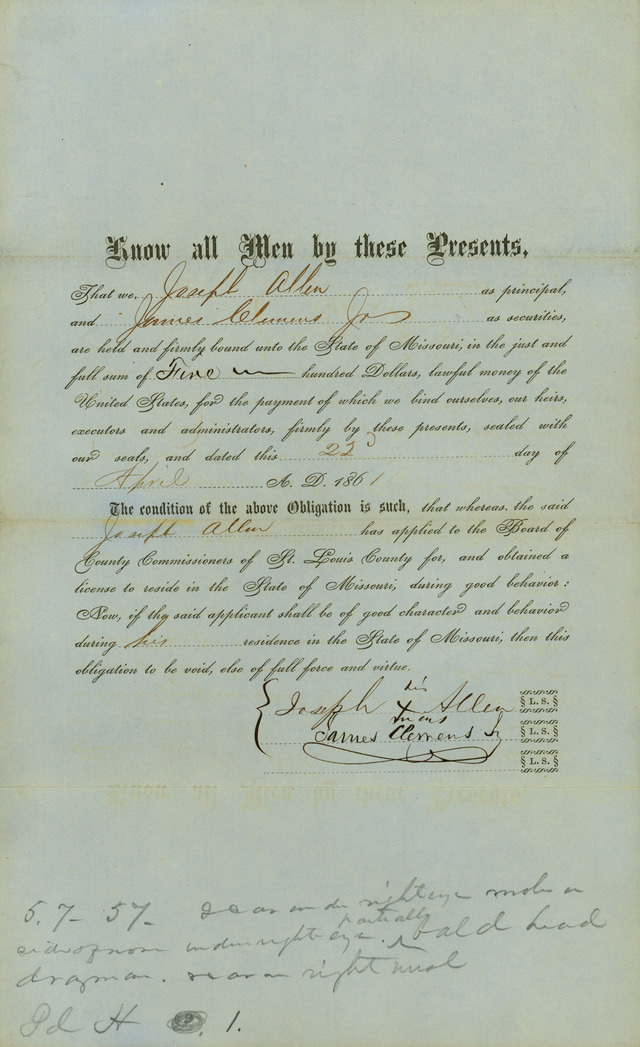 Know all Men by these Presents,
That we, Joseph Allen as principal,
and James Clemens Jr as securities,
are held and firmly bound unto the State of Missouri, in the just and
full sum of Five hundred Dollars, lawful money of the
United States, for the payment of which we bind ourselves, our heirs,
executors and administrators, firmly by these presents, sealed with
our seals, and dated this 22d day of
April A. D. 1861
The condition of the above Obligation is such, that whereas, the said
Joseph Allen has applied to the Board of
County Commissioners of St. Louis County for, and obtained a
license to reside in the State of Missouri, during good behavior:
Now, if the said applicant shall be of good character and behavior
during his residence in the State of Missouri, then this
obligation to be void, else of full force and virtue.
his
Joseph X Allen § L. S. §
mark
James Clemens Jr § L. S. §
§ L. S. §
5. 7- 57- scar under right eye mole on
partially
side of nose under right eye. bald head
drayman. scar on right
Pd H 1.